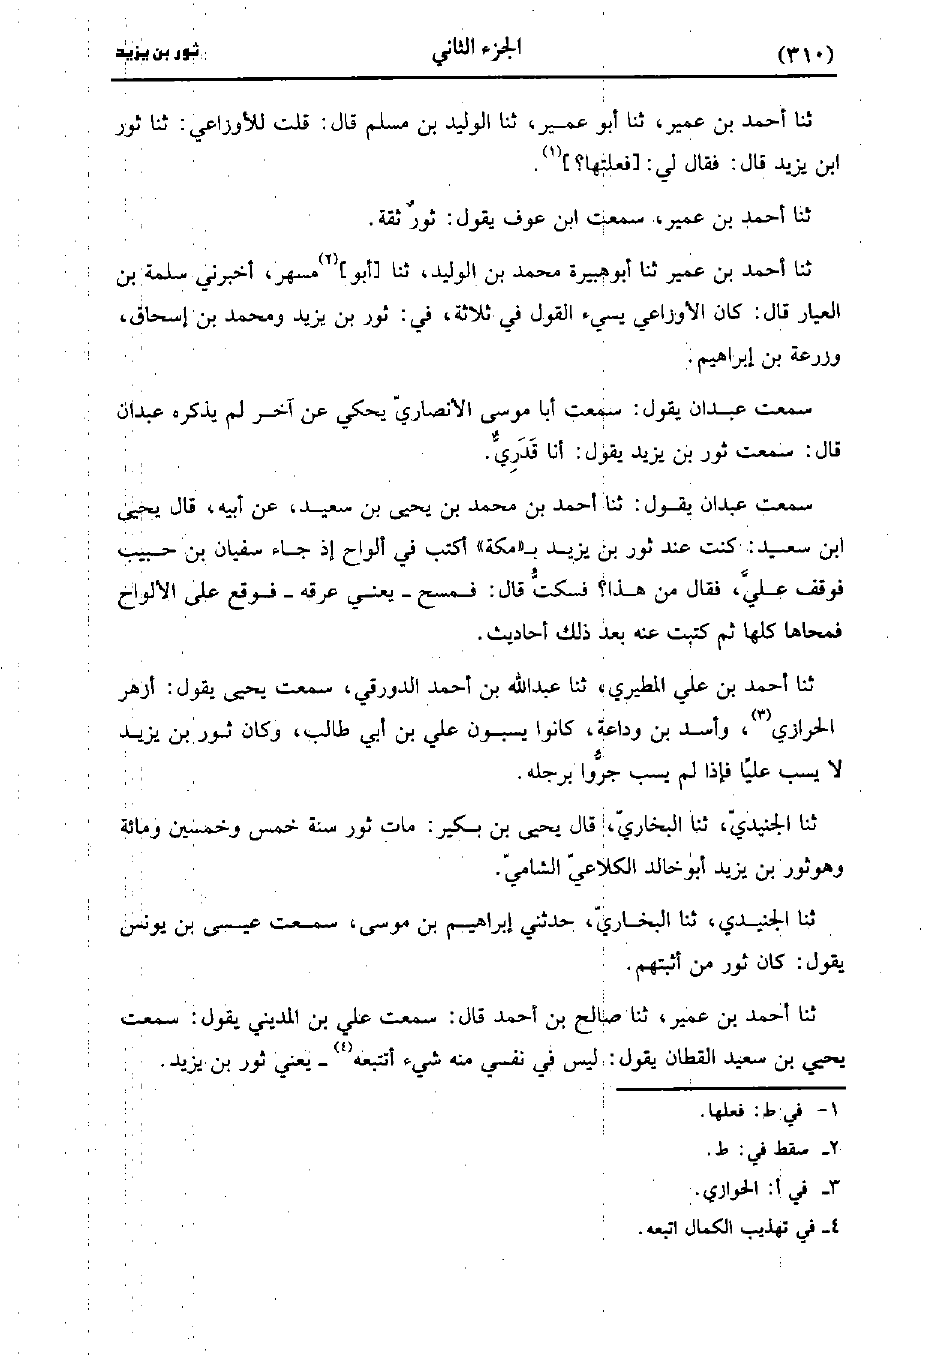 (٣١٠) الجزء الثاني ثور بن يزيد
ثنا أحمد بن عمير، ثنا أبو عمير، ثنا الوليد بن مسلم قال: قلت للأوزاعي: ثنا ثور
ابن يزيد قال: فقال لي: [فعلتها؟](١).
ثنا أحمد بن عمير، سمعت ابن عوف يقول: ثورٌ ثقة.
ثنا أحمد بن عمير ثنا أبوهبيرة محمد بن الوليد، ثنا [أبو](٢) مسهر، أخبرني سلمة بن
العيار قال: كان الأوزاعي يسيء القول في ثلاثة، في: ثور بن يزيد ومحمد بن إسحاق،
وزرعة بن إبراهيم.
سمعت عبدان يقول: سمعت أبا موسى الأنصاريّ يحكي عن آخر لم يذكره عبدان
قال: سمعت ثور بن يزيد يقول: أنا قَدَرِيٌّ.
سمعت عبدان يقول: ثنا أحمد بن محمد بن يحيى بن سعيد، عن أبيه، قال يحيى
ابن سعيد: كنت عند ثور بن يزيد بـ«مكة» أكتب في ألواح إذ جاء سفيان بن حبيب
فوقف عليَّ، فقال من هذا؟ فسكتُّ قال: فمسح ـ يعني عرقه ـ فوقع على الألواح
فمحاها كلها ثم كتبت عنه بعد ذلك أحاديث.
ثنا أحمد بن علي المطيري، ثنا عبدالله بن أحمد الدورقي، سمعت يحيى يقول: أزهر
الحرازي(٣)، وأسد بن وداعة، كانوا يسبون علي بن أبي طالب، وكان ثور بن يزيد
لا يسب عليًا فإذا لم يسب جرُّوا برجله.
ثنا الجنيديّ، ثنا البخاريّ، قال يحيى بن بكير: مات ثور سنة خمس وخمسين ومائة
وهوثور بن يزيد أبو خالد الكلاعيّ الشاميّ.
ثنا الجنيدي، ثنا البخاريّ، حدثني إبراهيم بن موسى، سمعت عيسى بن يونس
يقول: كان ثور من أثبتهم.
ثنا أحمد بن عمير، ثنا صالح بن أحمد قال: سمعت علي بن المديني يقول: سمعت
يحيي بن سعيد القطان يقول: ليس في نفسي منه شيء أتتبعه(٤) ـ يعني ثور بن يزيد.
١- في ط: فعلها.
٢ـ سقط في: ط.
٣ـ في أ: الحوازي.
٤ـ في تهذيب الكمال اتبعه.